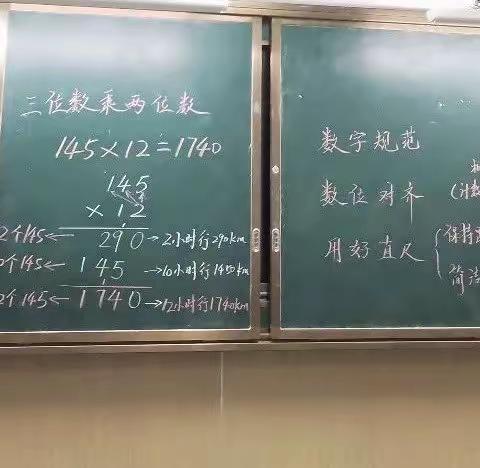 三位数乘两位数
145×12=1740
145
×12
2个145← 290→2小时行290km
0个145← 145→10小时行1450km
2个145← 1740→12小时行1740km
数字规范
数位对齐
(计数
用好直尺
保持
简洁